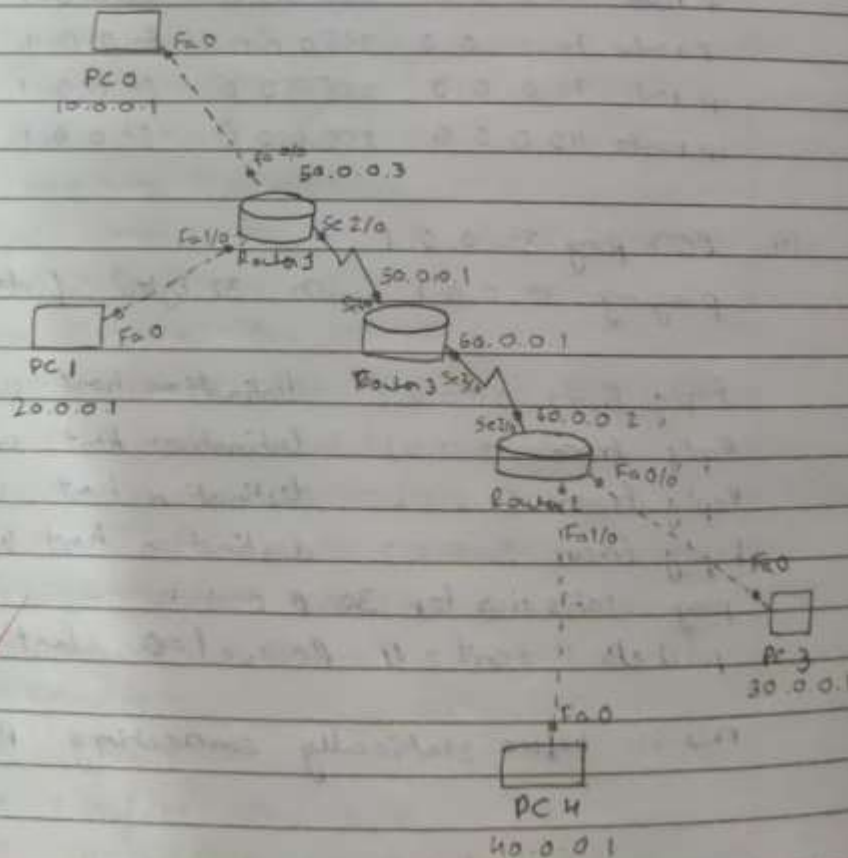 Fa0
PC0
10.0.0.1
fa0/0
50.0.0.3
Fa1/0
Se2/0
Router 1
50.0.0.1
Fa0
PC1
20.0.0.1
60.0.0.1
Router 3
60.0.0.2
Fa0/0
Router 2
Fa1/0
Fa0
PC 3
30.0.0.1
Fa0
PC 4
40.0.0.1